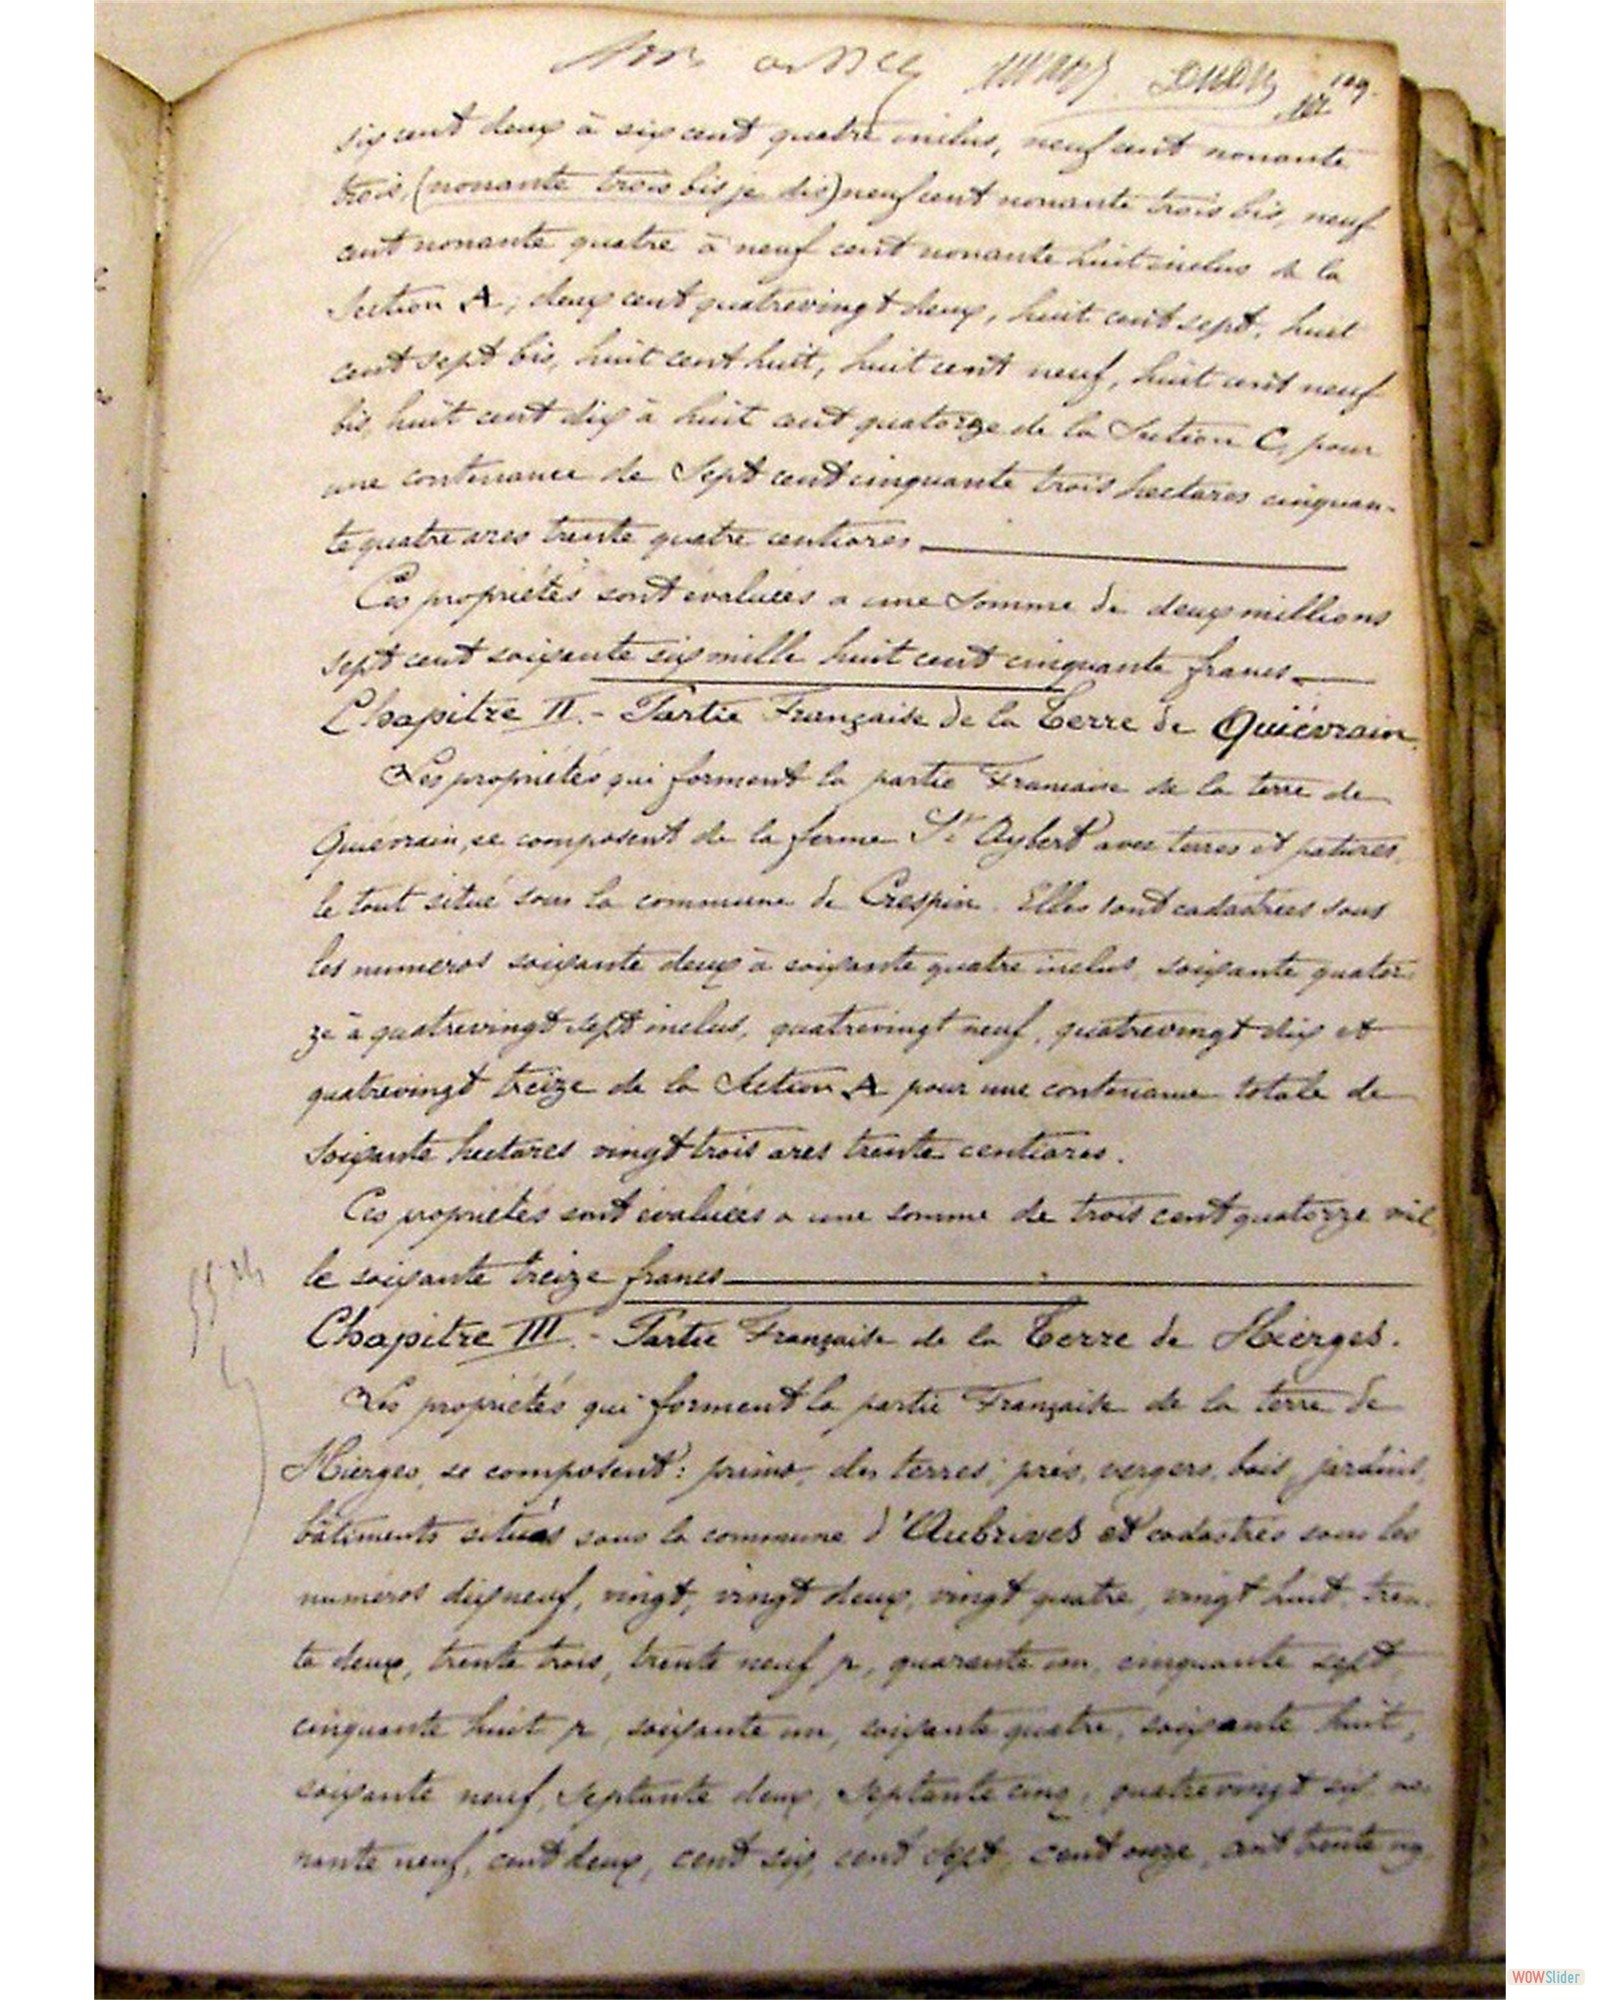 109.
six cent deux à six cent quatre inclus, neuf cent nonante
trois, (nonante trois bis je dis) neuf cent nonante trois bis, neuf
cent nonante quatre à neuf cent nonante huit inclus de la
Section A, deux cent quatrevingt deux, huit cent sept, huit
cent sept bis, huit cent huit, huit cent neuf, huit cent neuf
bis, huit cent dix à huit cent quatorze de la Section C, pour
une contenance de Sept cent cinquante trois hectares cinquan-
te quatre ares trente quatre centiares
Ces propriétés sont évaluées a une Somme de deux millions
sept cent soixante six mille huit cent cinquante francs
Chapitre II. - Partie Française de la Terre de Quiévrain
Les propriétés qui forment la partie Francaise de la terre de
Quiévrain, se composent de la ferme St Aybert avec terres et patures,
le tout situé sous la commune de Crespin. Elles sont cadastrées sous
les numéros soixante deux à soixante quatre inclus, soixante quator
ze à quatrevingt sept inclus, quatrevingt neuf, quatrevingt dix et
quatrevingt treize de la Section A pour une contenance totale de
Soixante hectares vingt trois ares trente centiares.
Ces propriétés sont évaluées a une somme de trois cent quatorze mil
le soixante treize francs
Chapitre III. - Partie Française de la Terre de Hierges.
Les propriétés qui forment la partie Française de la terre de
Hierges, se composent : primo, des terres, prés, vergers, bois, jardins,
bâtiments situés sous la commune d'Aubrives et cadastrés sous les
numéros dixneuf, vingt, vingt deux, vingt quatre, vingt huit, tren-
te deux, trente trois, trente neuf p, quarante un, cinquante sept,
cinquante huit p, soixante un, soixante quatre, soixante huit,
soixante neuf, Septante deux, Septante cinq, quatrevingt six, no-
nante neuf, cent deux, cent six, cent sept, cent onze, cent trente
WOWSlider